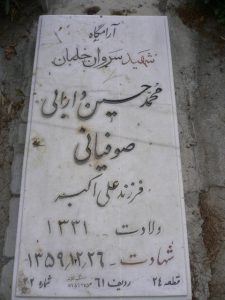 آرامگاه
شهید سروان خلبان
محمد حسین دارابی
صوفیانی
فرزند علی اکبر
ولادت ۱۳۳۱
شهادت ۱۳۵۹،۱۰،۲۶
قطعه ۲۴ ردیف ۶۱ شماره ۳۲